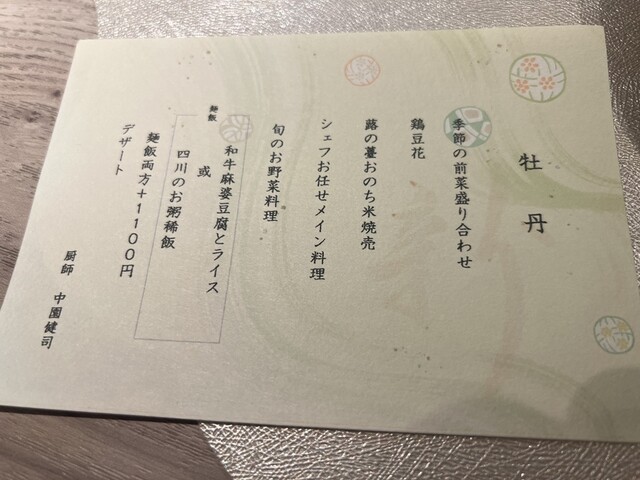 牡丹
季節の前菜盛り合わせ
鶏豆花
蕗の薹おのち米焼売
シェフお任せメイン料理
旬のお野菜料理
麺飯
和牛麻婆豆腐とライス
或
四川のお粥稀飯
麺飯両方+1100円
デザート
厨師 中園健司